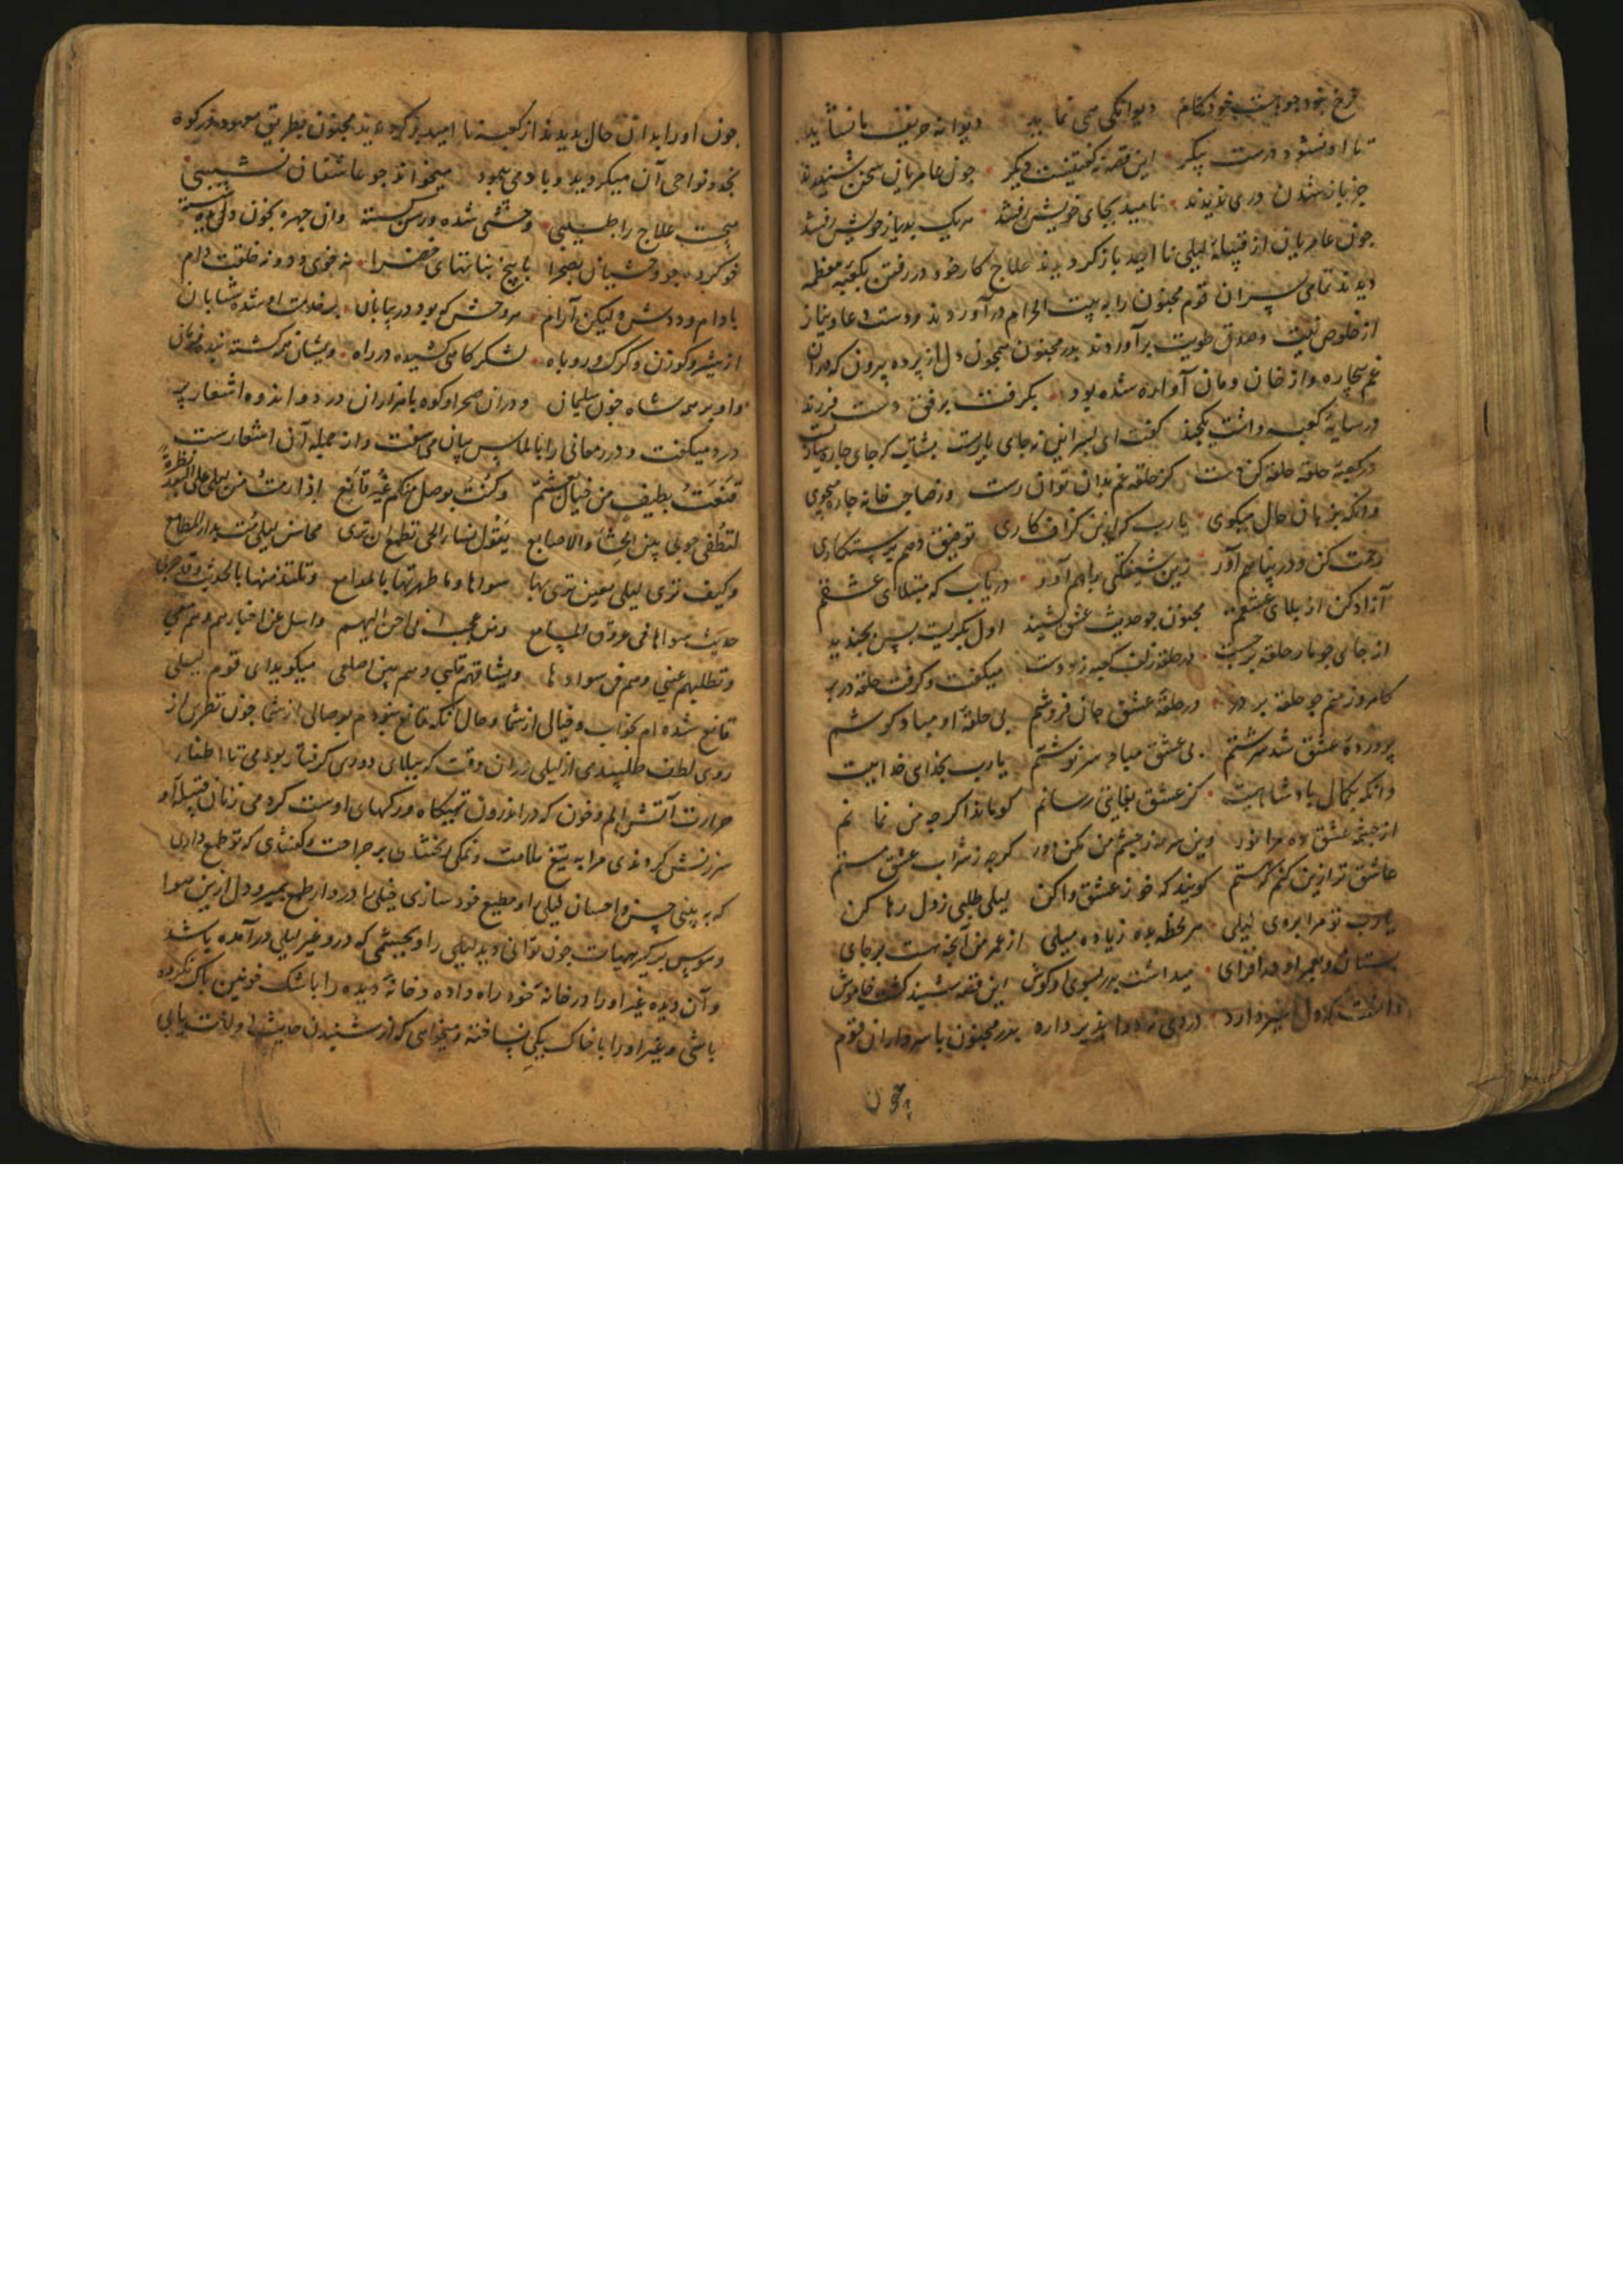 فرخ نبود جو هست خودکام دیوانگی می نماید دیوانه حریف ما نشاید
تا او نشود درست پیکر این قصه نه گفتنیست دیگر جون عامریان سخن شنیدند
جز باز شدن دری ندیدند نامید بجای خویش رفتند هر یک بدیار خویش رفتند
جون عامریان از قبیلهٔ لیلی نا امید باز کردیدند علاج کار خود در رفتن بکعبهٔ معظمه
دیدند تمامی پسران قوم مجنون را به بیت الحرام در آوردند و دست دعا و نیاز
از خلوص نیت و صدق طویت برآوردند پدر مجنون همجون دل از پرده بیرون که دران
غم بیچاره و از خان و مان آواره شده بود بکرفت برفق دست فرزند
در سایهٔ کعبه داشت یکچند گفت ای پسر این نه جای بازیست بشتاب که جای چاره سازیست
در کعبه حلقه حلقه کن دست کز حلقه غم بدان توان رست وز صاحب خانه چاره میجوی
وانکه بزبان حال میکوی یارب کزین کزاف کاری توفیق دهم برستکاری
رحمت کن و در پناهم آور زین شیفتکی براهم آور دریاب که مبتلای عشقم
آزاد کن از بلای عشقم مجنون جو حدیث عشق بشنید اول بکریست پس بخندید
از جای جو مار حلقه برجست در حلقه زلف کعبه زد دست میکفت و کرفت حلقه در بر
کامروز منم جو حلقه بر در در حلقهٔ عشق جان فروشم بی حلقهٔ او مباد کوشم
پروردهٔ عشق شد سرشتم بی عشق مباد سرنوشتم یارب بخدای خداییت
وانکه بکمال پادشاهیت کز عشق بغایتی رسانم کو ماند اکرچه من نمانم
از جشمهٔ عشق ده مرا نور وین سرمه ز جشم من مکن دور کرچه ز شراب عشق مستم
عاشق تر ازین کنم که هستم کویند که خو ز عشق وا کن لیلی طلبی ز دل رها کن
یارب تو مرا بروی لیلی هر لحظه بده زیاده میلی از عمر من آنچه هست برجای
بستان و بعمر او در افزای میداشت پدر بسوی او کوش این قصه شنید کشت خاموش
دانست که دل اسیر دارد دردی نه دوا پذیر دارد پدر مجنون با سرداران قوم
چون
جون او را بدان حال بدیدند از کعبه نا امید باز کردیدند مجنون بطریق معهود در کوه
نجد و نواحی آن میکردید و باد می پیمود میخواند جو عاشقان نسیبی
میجست علاج را طبیبی وحشی شده و رسن کسسته وان جهره بخون دل
خو کرده جو وحشیان بصحرا با بیخ بناتهای خضرا نه خوی دد و نه خلقت دام
با دام و ددش و لیکن آرام هر وحش که بود در بیابان بر خدمت او شده شتابان
از شیر و کوزن و کرک و روباه لشکر کاهی کشیده در راه ویشان همه کشته بنده فرمان
و او بر همه شاه جون سلیمان و دران صحرا و کوه با هزاران درد و اندوه اشعار پر
درد میکفت و درر معانی را بالماس بیان می سفت و از جمله آن اشعارست
قنعت بطیف من خیال مشتم وکنت بوصل منکم غیر قانع اذا رمت من لیلی علی البعد نظرة
لتطفی جوی بین الحشا والاضالع یقول نساء الحی تطمع ان تری محاسن لیلی مت بداء المطامع
وکیف تری لیلی بعین تری بها سواها وما طهرتها بالمدامع وتلتذ منها بالحدیث وقد جری
حدیث سواها فی خروق المسامع ومن عجب انی احن الیهم واسئل عن اخبارهم وهم معی
وتطلبهم عینی وهم فی سوادها ویشتاقهم قلبی وهم بین اضلعی میکوید ای قوم لیلی
قانع شده ام بخواب و خیالی از شما و حال آنکه قانع نبودم بوصالی از شما جون نظری از
روی لطف طلبیدمی از لیلی دران وقت که ببلای دوری کرفتار بودمی تا اطفار
حرارت آتش الم و خون که در اندرون تهیکاه و رکهای اوست کردمی زنان قبیله او
سرزنش کردندی مرا به تیغ ملامت و نمکی ریختندی بر جراحت و کفتندی که تو طمع داری
که به بینی حسن و احسان لیلی او مطیع خود سازی خیلی را درد از طمع بمیر و دل ازین هوا
و هوس برکیر هیهات جون توانی دید لیلی را و بجشمی که در و غیر لیلی در آمده باشد
و آن دیده غیر او را در خانهٔ خود راه داده و خانهٔ دیده را باشک خونین پاک نکرده
باشی و غیر او را با خاک یکی نساخته و میخواهی که از شنیدن حدیث او لذت یابی